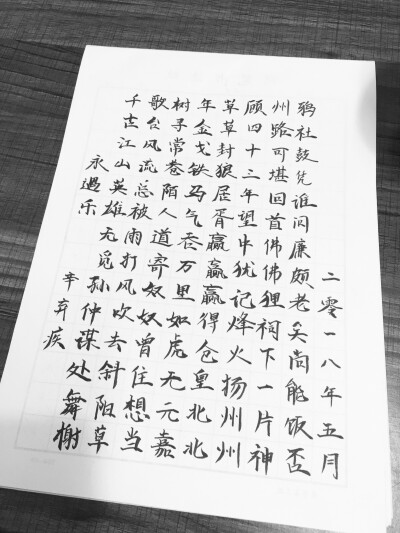 永遇乐 辛弃疾
千古江山英雄无觅孙仲谋处舞榭
歌台风流总被雨打风吹去斜阳草
树子常巷陌人道寄奴奴曾住想当
年金戈铁马气吞万里如虎无元嘉
草草封狼居胥赢赢赢得仓皇北北
顾四十三年望中犹记烽火扬州州
州路可堪回首佛佛狸祠下一片神
鸦社鼓凭谁问廉颇老矣尚能饭否
二零一八年五月